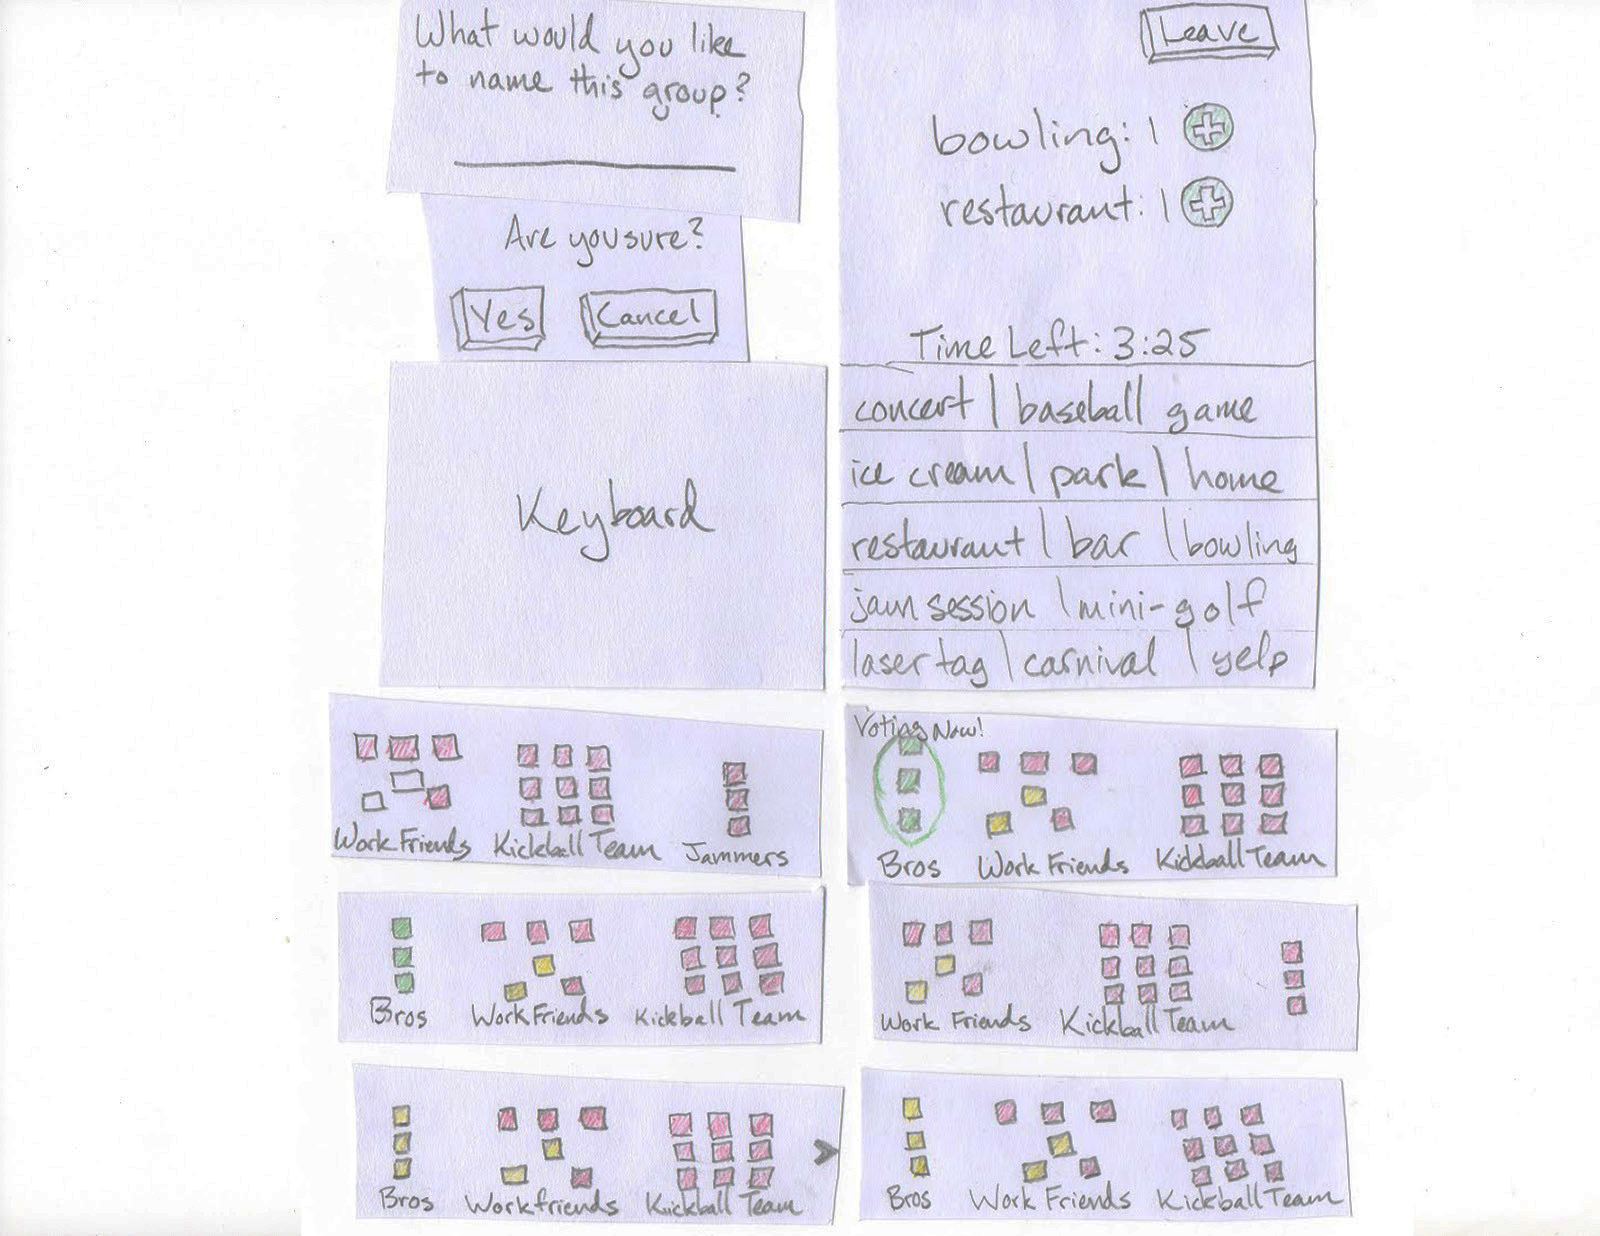 What would you like
to name this group?
Are you sure?
Yes
Cancel
Keyboard
Leave
bowling: 1
restaurant: 1
Time Left: 3:25
concert | baseball game
ice cream | park | home
restaurant | bar | bowling
jam session | mini-golf
laser tag | carnival | yelp
Work Friends Kickball Team Jammers
Voting Now!
Bros Work Friends Kickball Team
Bros Work Friends Kickball Team
Work Friends Kickball Team
Bros Workfriends Kickball Team
Bros Work Friends Kickball Team